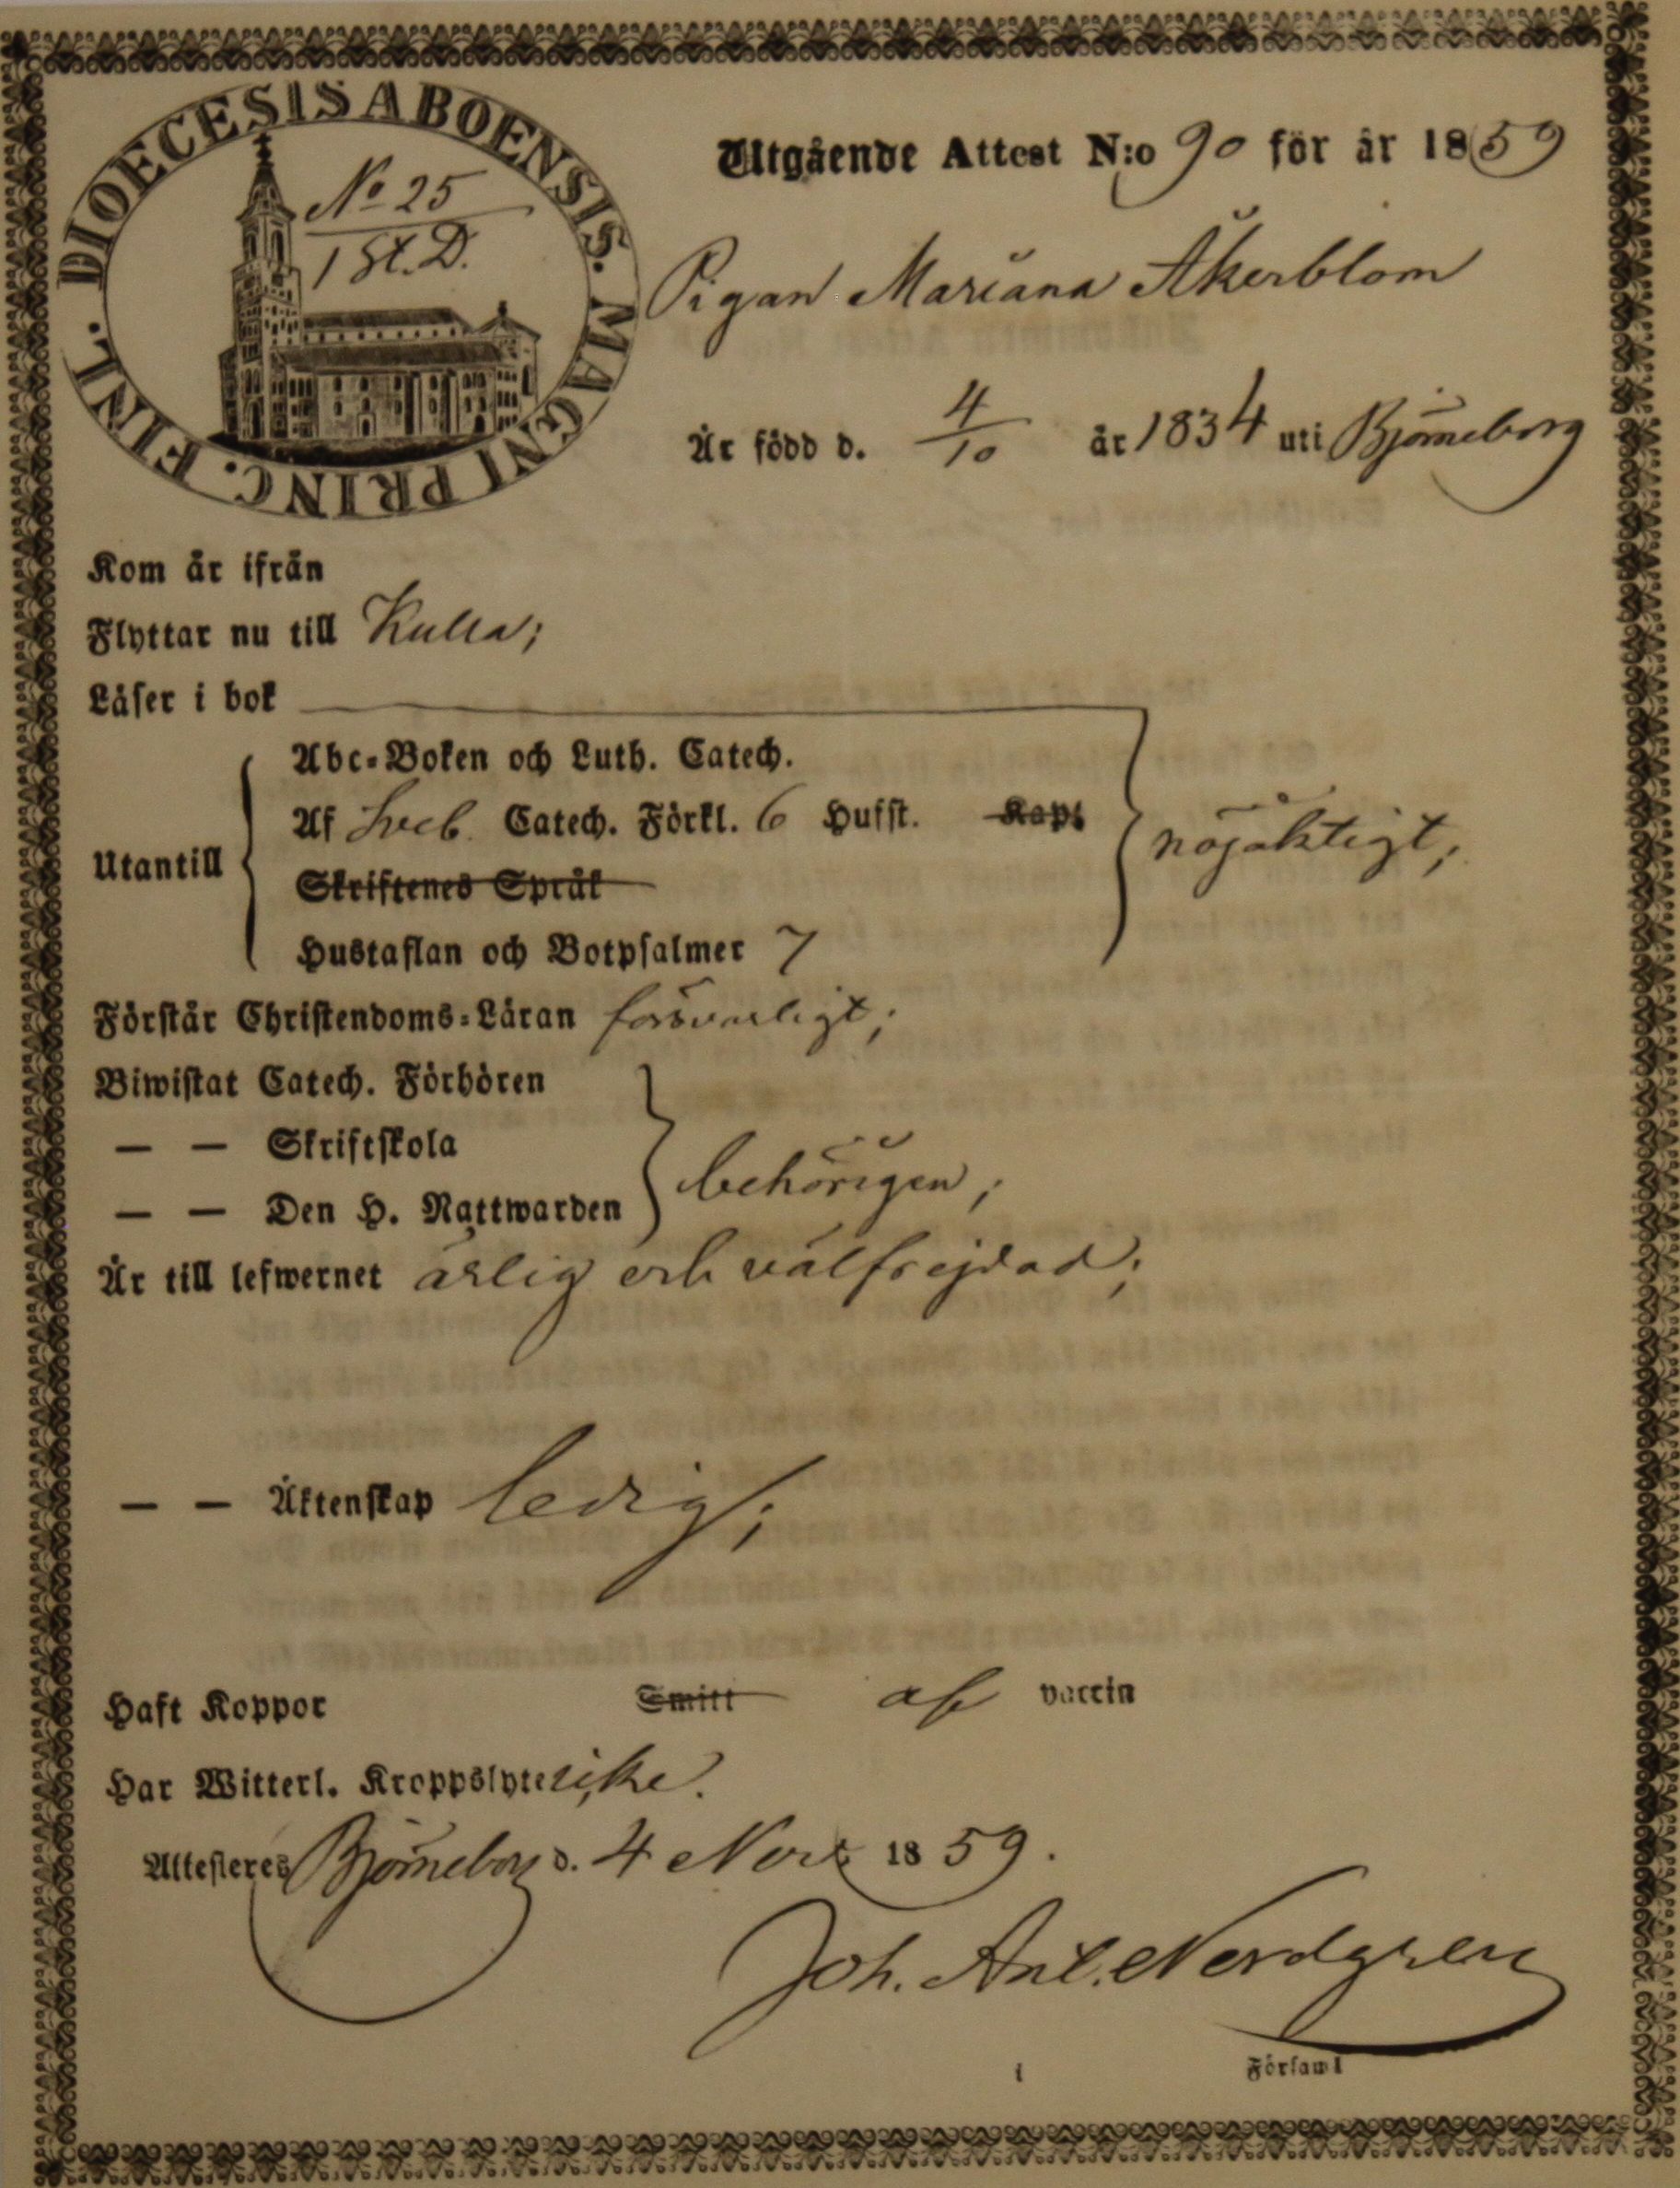 DIOECESIS ABOENSIS. MAGNI PRINC. FINL.
No 25
1 St. D.
Utgående Attest N:o 90 för år 1859
Pigan Mariana Åkerblom
Är född d. 4/10 år 1834 uti Björneborg
Kom år ifrån
Flyttar nu till Kulla;
Läser i bok
Abc-Boken och Luth. Catech.
Af Sveb. Catech. Förkl. 6 Hufst. Kap.
Utantill
nöjaktigt;
Skriftenes Språk
Hustaflan och Botpsalmer 7
Förstår Christendoms-Läran försvarligt;
Biwistat Catech. Förhören
— — Skriftskola
behörigen;
— — Den H. Nattwarden
Är till lefwernet ärlig och välfrejdad;
— — Äktenskap ledig;
Haft Koppor Smitt af vaccin
Har Witterl. Kroppslyte icke.
Attesteres Björneborg d. 4 Nov. 1859.
Joh. Ant. Nordgren
i Församl